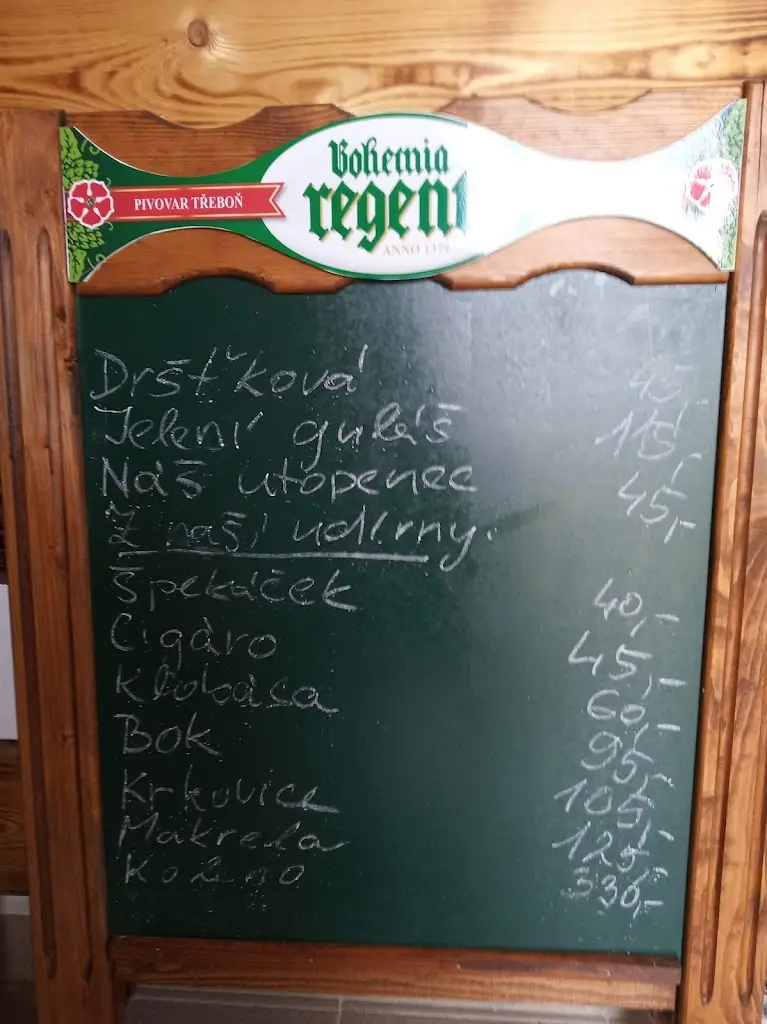 Bohemia
PIVOVAR TŘEBOŇ
regent
ANNO 1379
Dršťková 45,-
Jelení guláš 115,-
Náš utopenec 45,-
Z naší udírny.
Špekáček 40,-
Cigáro 45,-
Klobása 60,-
Bok 95,-
Krkovice 105,-
Makrela 125,-
Koleno 330,-